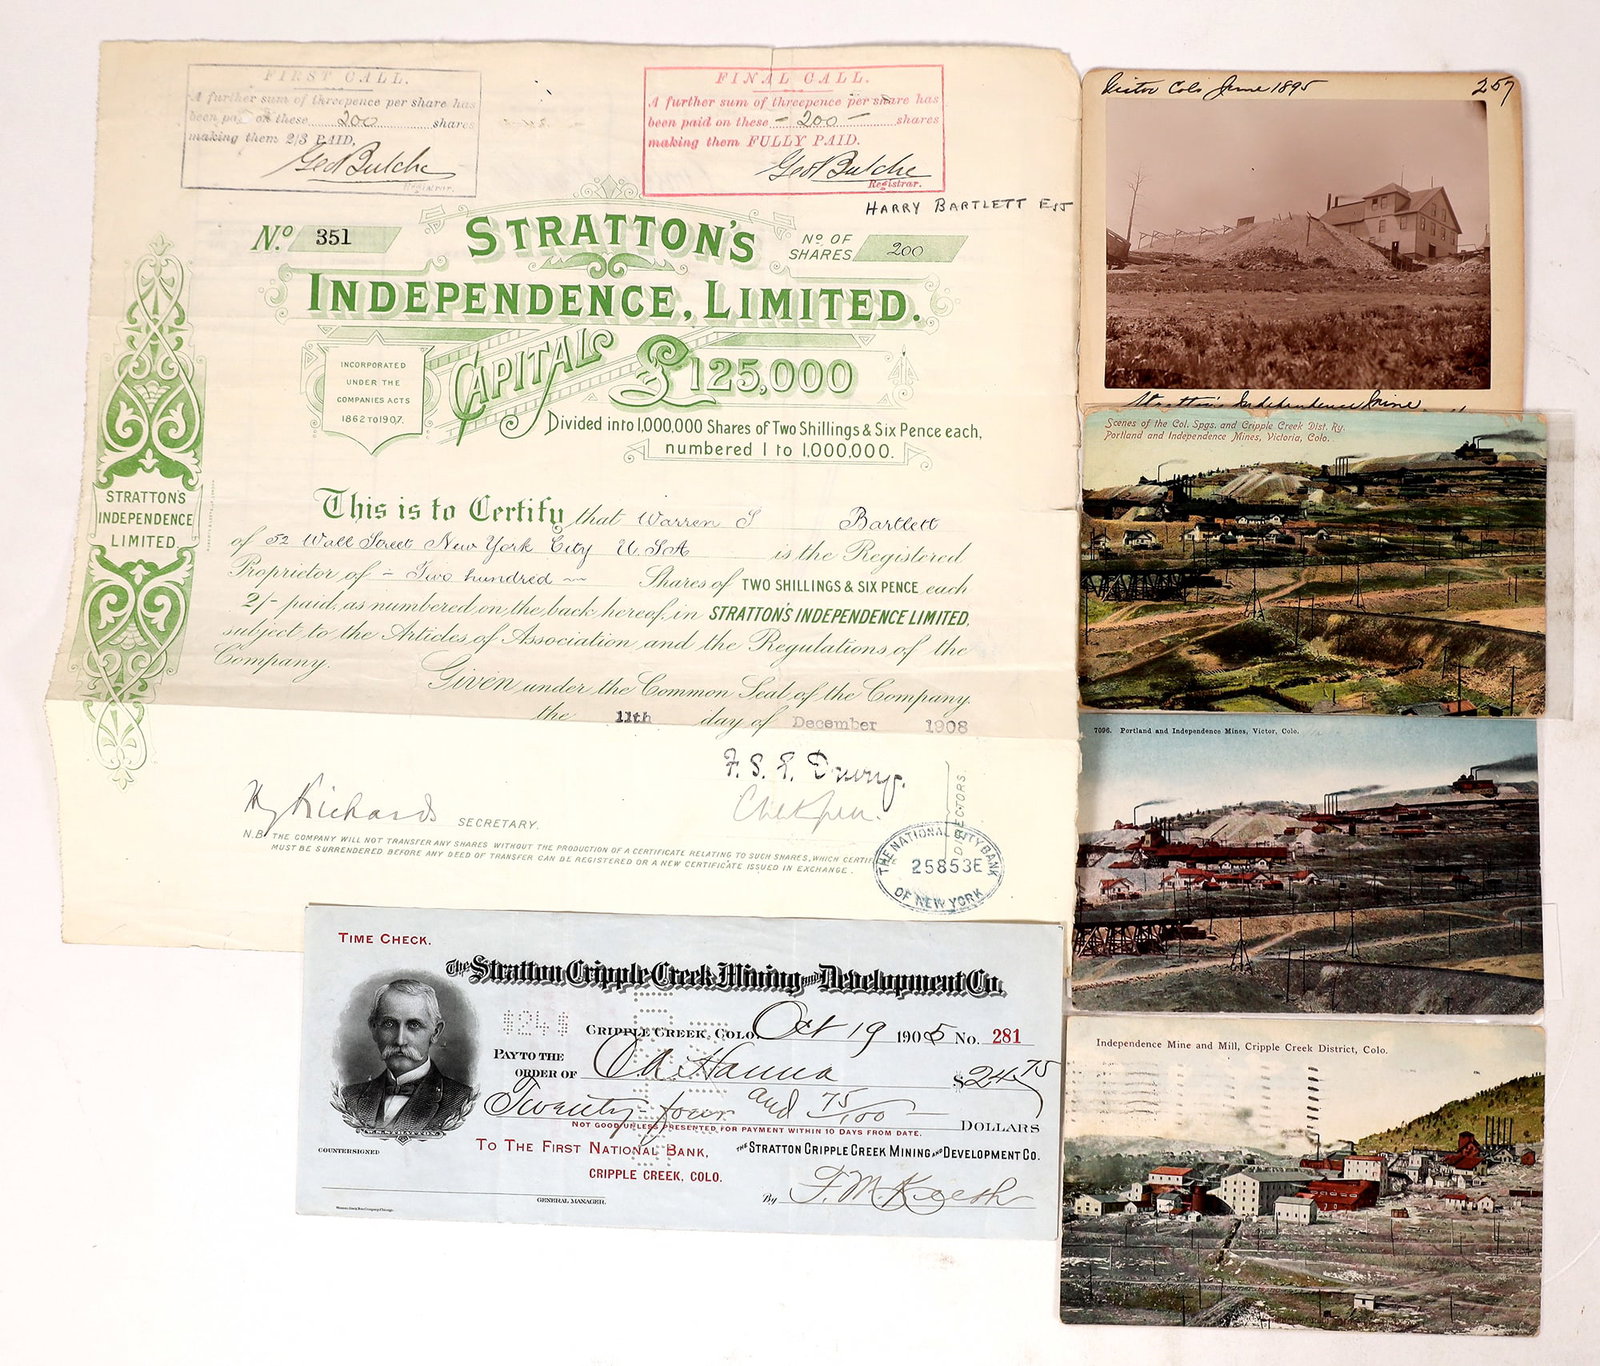 FIRST CALL.
A further sum of threepence per share has
been paid on these 200 shares
making them 2/3 PAID,
Geo Butcher
Registrar.
FINAL CALL.
A further sum of threepence per share has
been paid on these - 200 - shares
making them FULLY PAID.
Geo Butcher
Registrar.
HARRY BARTLETT
No. 351
STRATTON'S
INDEPENDENCE, LIMITED.
No. OF
SHARES 200
INCORPORATED
UNDER THE
COMPANIES ACTS
1862 TO 1907.
CAPITAL £125,000
Divided into 1,000,000 Shares of Two Shillings & Six Pence each,
numbered 1 to 1,000,000.
STRATTON'S
INDEPENDENCE
LIMITED
This is to Certify that Warren S Bartlett
of 52 Wall Street New York City U.S.A. is the Registered
Proprietor of - Two hundred - Shares of TWO SHILLINGS & SIX PENCE each
2/- paid, as numbered on the back hereof, in STRATTON'S INDEPENDENCE LIMITED,
subject to the Articles of Association and the Regulations of the
Company. Given under the Common Seal of the Company
the 11th day of December 1908
Richards SECRETARY.
DIRECTORS.
N.B. THE COMPANY WILL NOT TRANSFER ANY SHARES WITHOUT THE PRODUCTION OF A CERTIFICATE RELATING TO SUCH SHARES, WHICH CERTIF
MUST BE SURRENDERED BEFORE ANY DEED OF TRANSFER CAN BE REGISTERED OR A NEW CERTIFICATE ISSUED IN EXCHANGE.
THE NATIONAL CITY BANK
25853E
OF NEW YORK
TIME CHECK.
The Stratton Cripple Creek Mining and Development Co.
$24$
CRIPPLE CREEK, COLO. Oct 19 1905 No. 281
PAY TO THE
ORDER OF Hanna $24.75
Twenty-four and 75/100 DOLLARS
NOT GOOD UNLESS PRESENTED FOR PAYMENT WITHIN 10 DAYS FROM DATE.
TO THE FIRST NATIONAL BANK,
CRIPPLE CREEK, COLO.
THE STRATTON CRIPPLE CREEK MINING AND DEVELOPMENT CO.
COUNTERSIGNED
GENERAL MANAGER.
By
Victor Colo June 1895 257
Stratton's Independence Mine
Scenes of the Col. Spgs. and Cripple Creek Dist. Ry.
Portland and Independence Mines, Victoria, Colo.
7096. Portland and Independence Mines, Victor, Colo.
Independence Mine and Mill, Cripple Creek District, Colo.